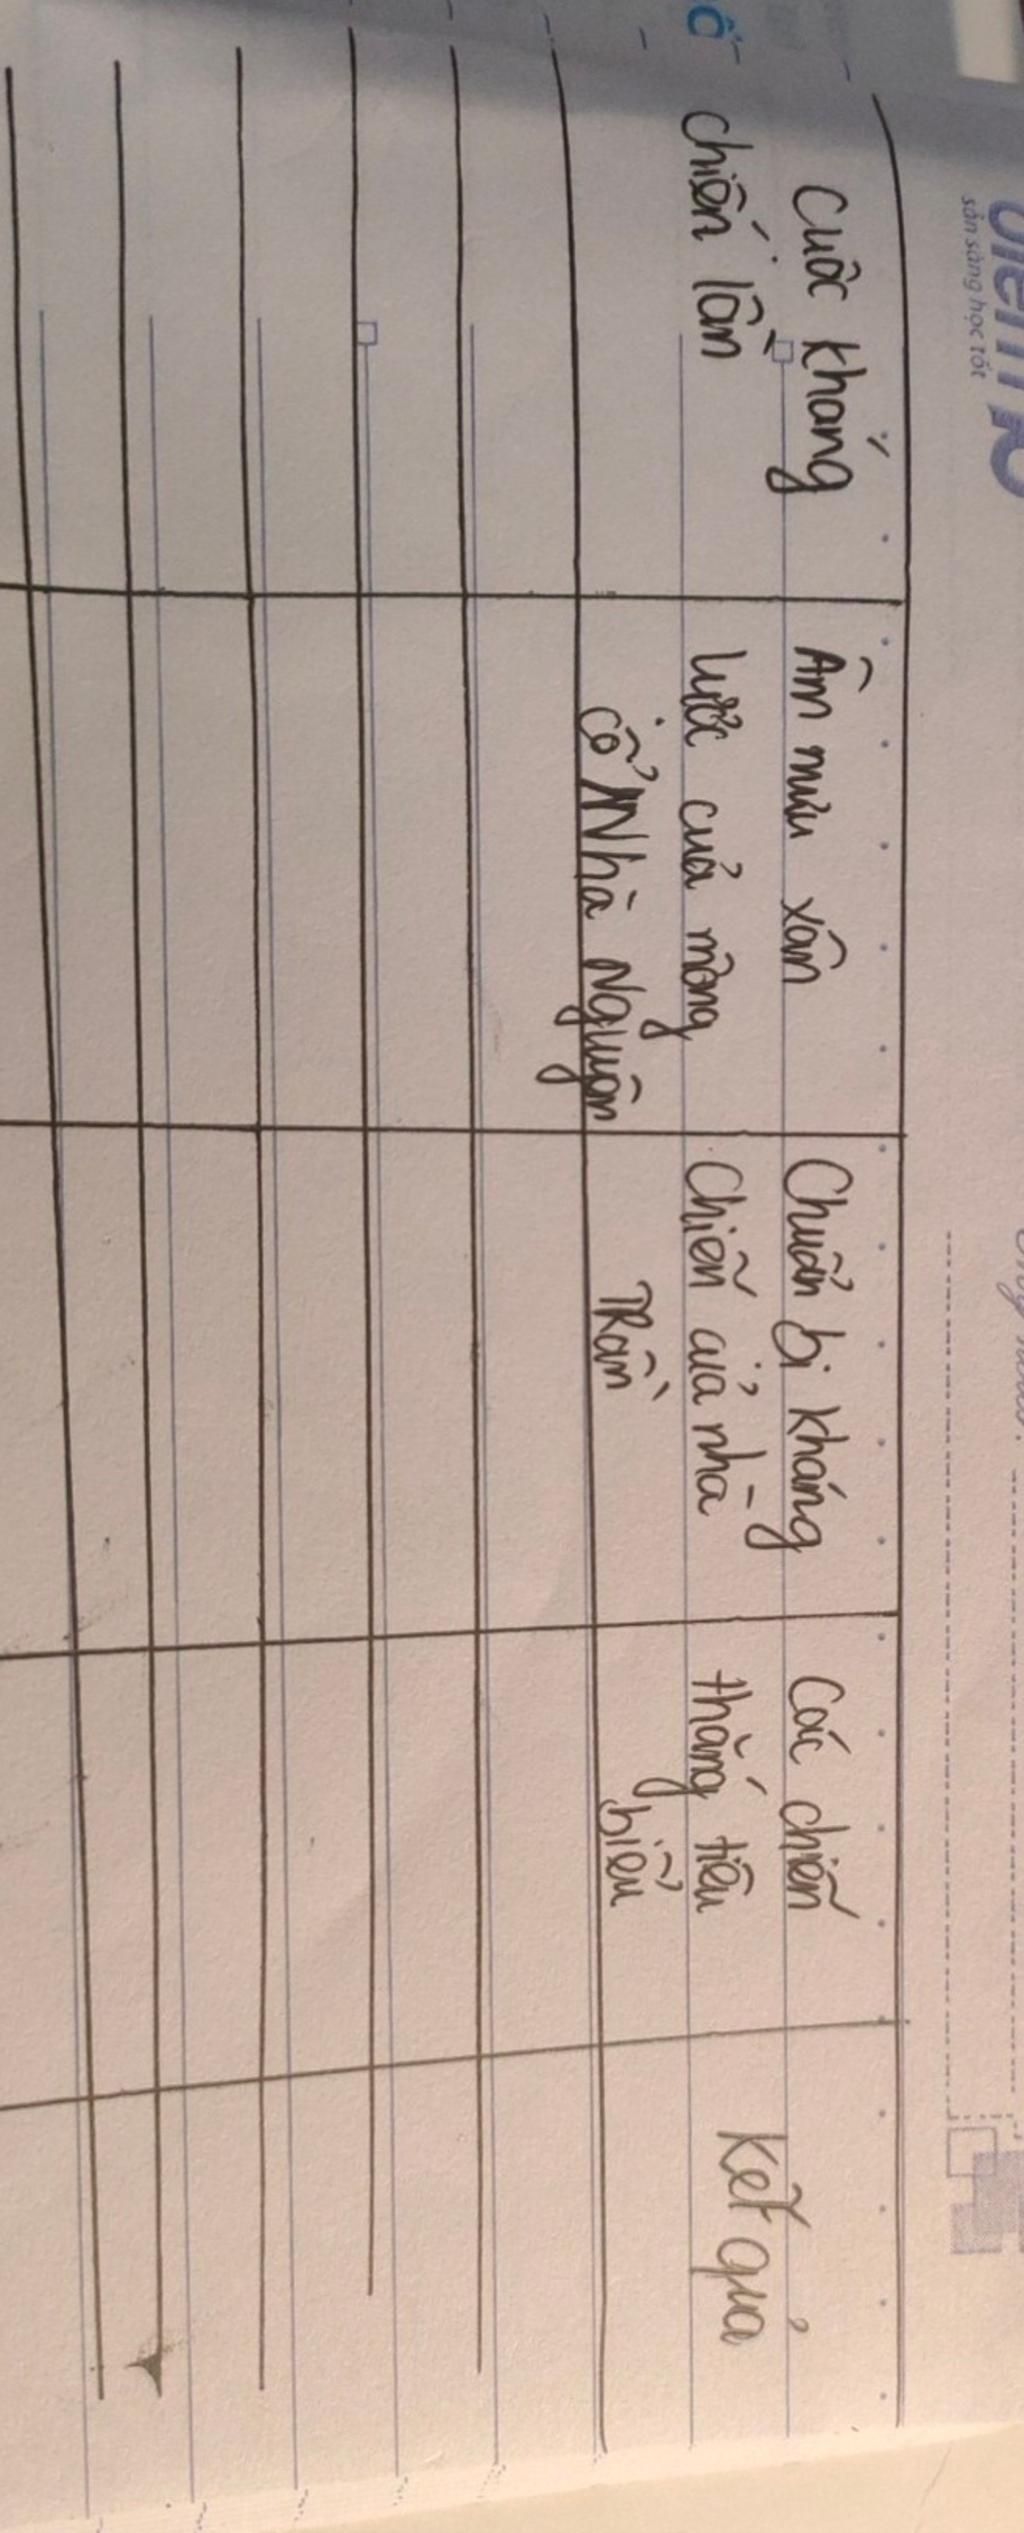 sẵn sàng học tốt
Cuộc kháng
chiến lần
Âm mưu xâm
lược của mông
cổ Nhà Nguyên
Chuẩn bị kháng
Chiến của nhà
TRần
Các chiến
thắng tiêu
biểu
Kết quả